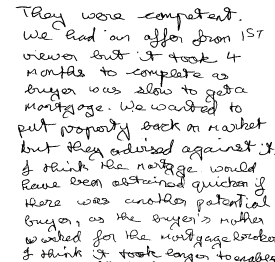 They were competent.
We had an offer from 1ST
viewer but it took 4
months to complete as
buyer was slow to get a
mortgage. We wanted to
put property back on market
but they advised against it.
I think the mortgage would
have been obtained quicker if
there was another potential
buyer, as the buyer's mother
worked for the mortgage broker
I think it took longer to enable